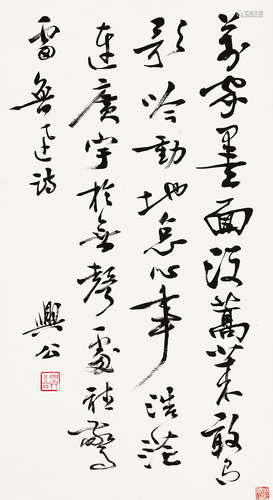 萬家墨面没蒿萊敢有
歌吟動地哀心事浩茫
連廣宇於無聲處聽驚
雷魯迅詩
興公